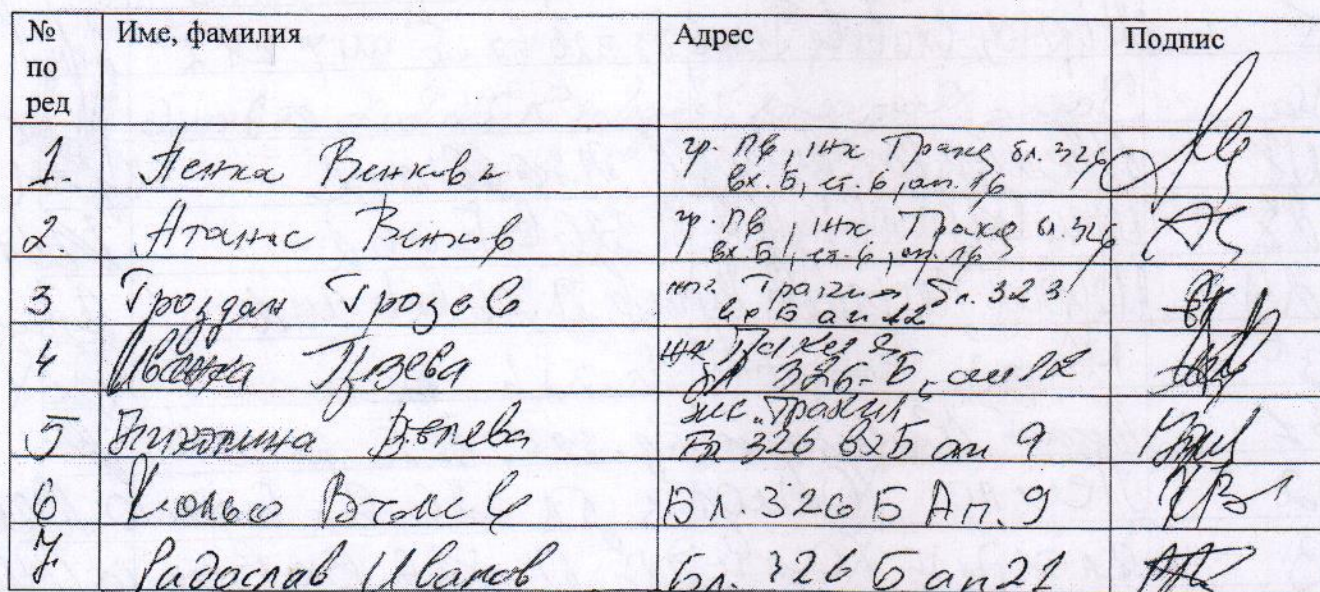 № по ред Име, фамилия Адрес Подпис
1. Пенка Венкова гр. Пв, жк Тракия бл. 326
вх. Б, ет. 6, ап. 16
2 Атанас Венков гр. Пв, жк Тракия бл. 326
вх. Б, ет. 6, ап. 16
3 Гроздан Грозев Тракия бл. 323
вх Б ап 12
4 жк Тракия
бл 326-Б, ап 12
5 Велева жк. Тракия
Бл 326 вхБ ап 9
6 Кольо Велев Бл. 326 Б Ап. 9
7 Радослав Иванов Бл. 326 Б ап 21